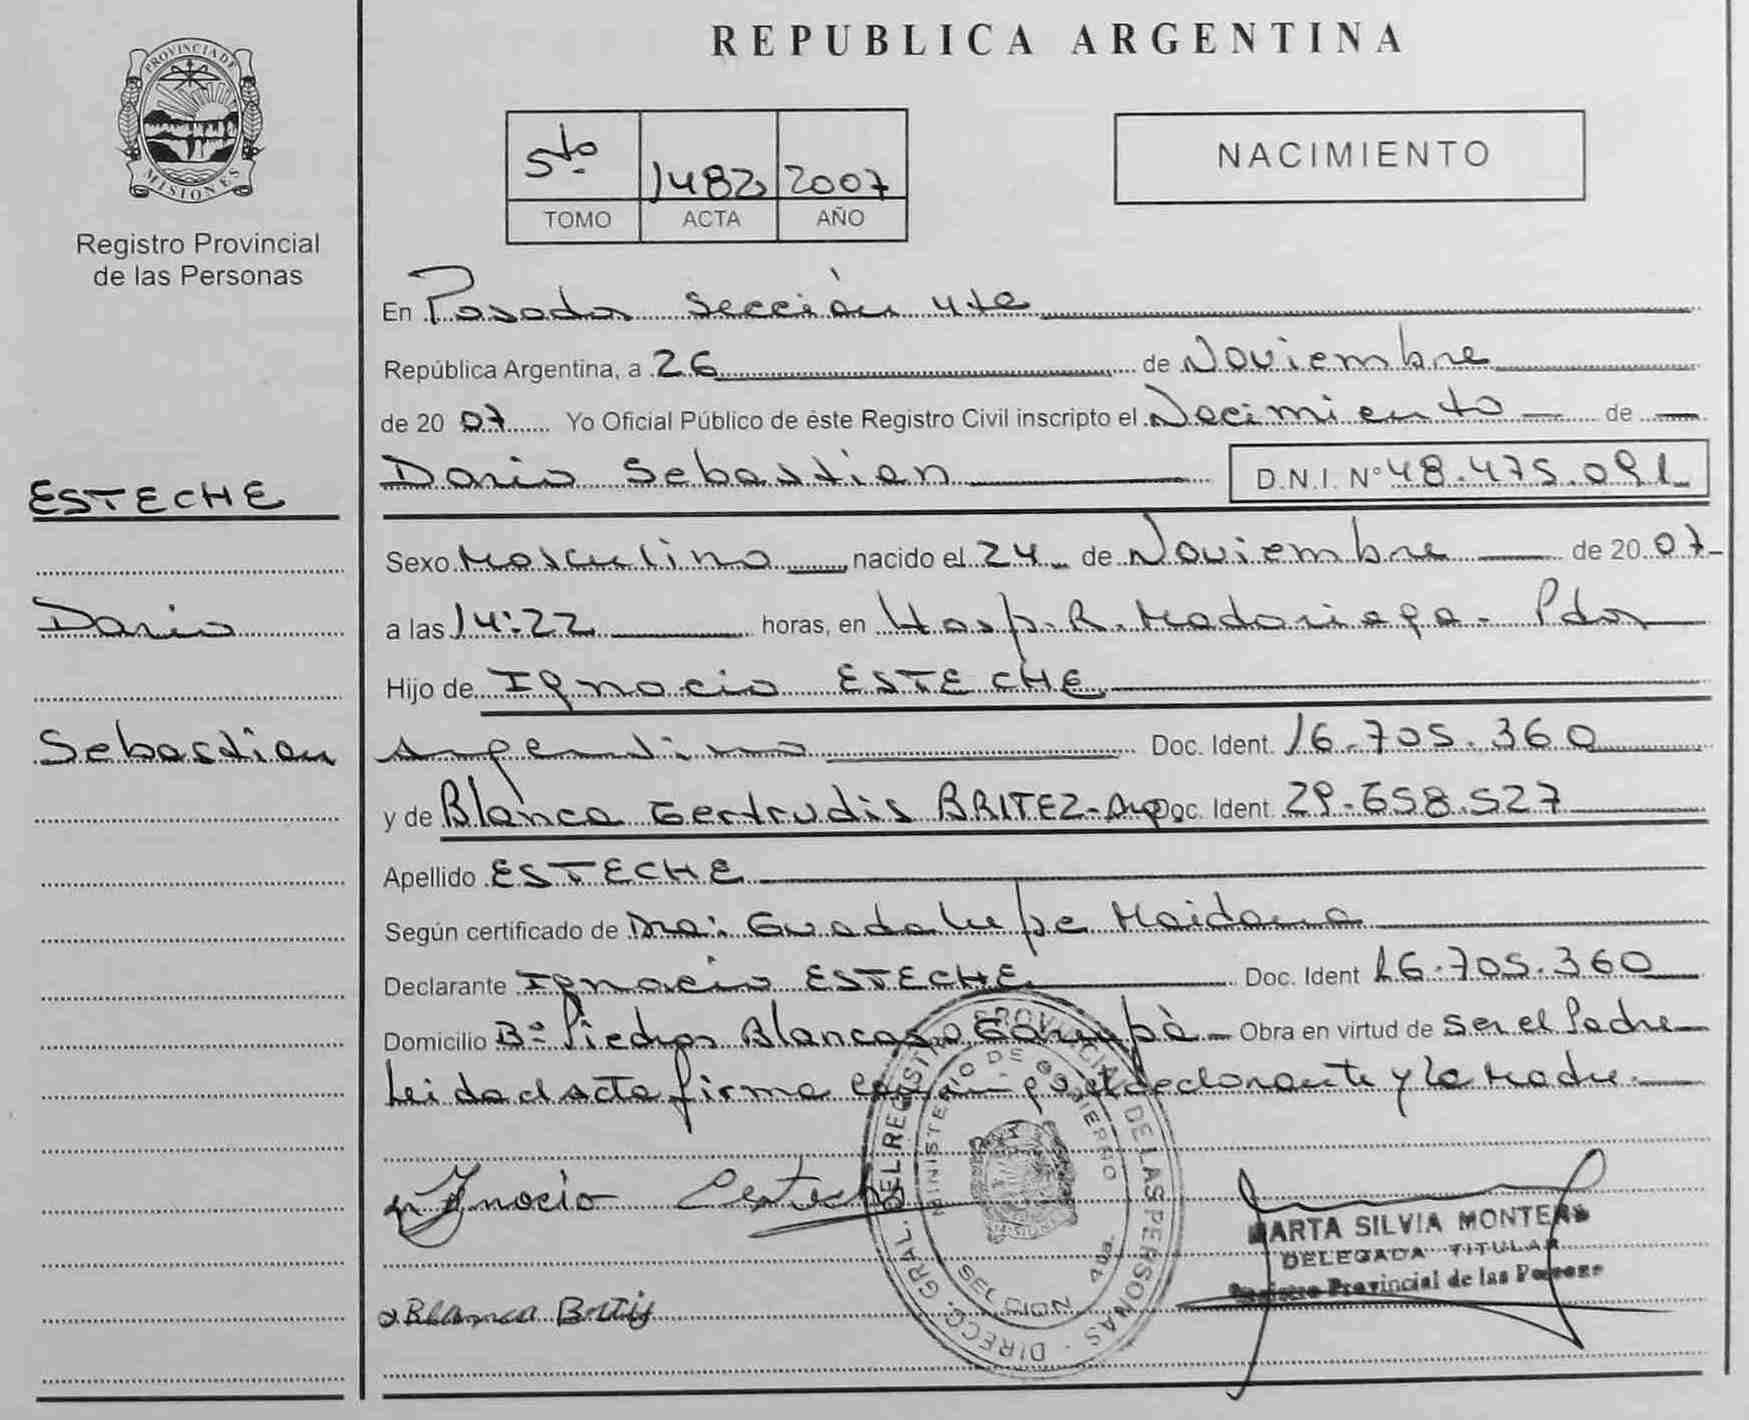 REPUBLICA ARGENTINA
PROVINCIA DE MISIONES
Registro Provincial
de las Personas
5to 1482 2007
TOMO ACTA AÑO
NACIMIENTO
En Posadas Sección 4ta
República Argentina, a 26 de Noviembre
de 2007 Yo Oficial Público de éste Registro Civil inscripto el Nacimiento de
Dario Sebastian D.N.I. Nº 48.475.091
ESTECHE
Dario
Sebastian
Sexo Masculino nacido el 24 de Noviembre de 2007
a las 14:22 horas, en Hosp. R. Madariaga - Pdas
Hijo de Ignacio ESTECHE
Argentino Doc. Ident. 16.705.360
y de Blanca Gertrudis BRITEZ - Arg Doc. Ident. 29.658.527
Apellido ESTECHE
Según certificado de Dra: Guadalupe Maidana
Declarante Ignacio ESTECHE Doc. Ident 16.705.360
Domicilio Bº Piedras Blancas Garupá - Obra en virtud de ser el Padre
Leida el acta firma el declarante y la Madre.
Ignacio Esteche
MARTA SILVIA MONTERO
DELEGADA TITULAR
Registro Provincial de las Personas
Blanca
DIRECC. GRAL. DEL REGISTRO PROVINCIAL DE LAS PERSONAS
MINISTERIO DE GOBIERNO
SECCION 4ta.